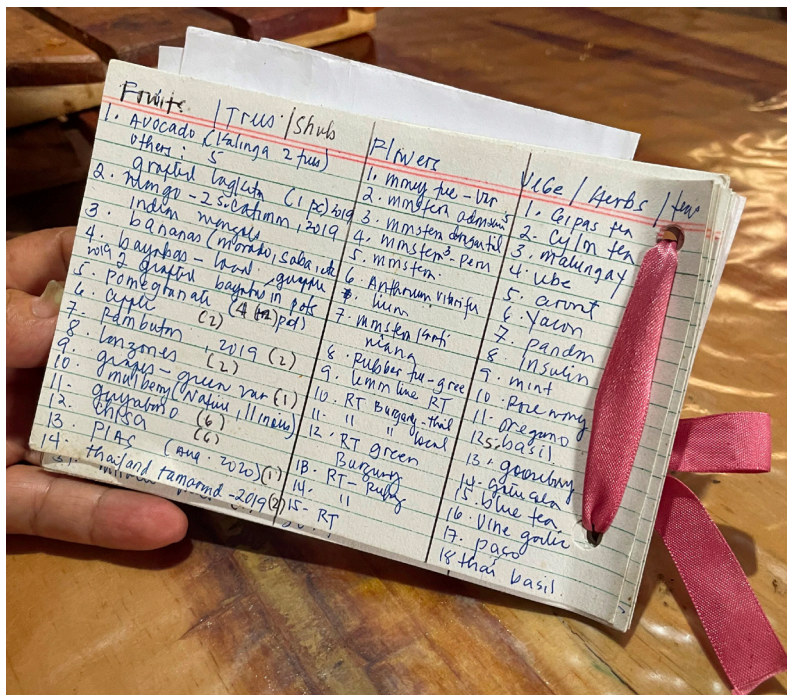 Fruits / Trees / Shub
1. Avocado (Kalinga 2 trees)
others: 5
grafted (1 pc) 2019
2. Mango - 2 , 2019
Indian mango
3. bananas (morado, saba, etc
4. bayabas - local, guapple
2019 2 grafted bayabas in pots
5. pomegranate (4 pots)
6. apple (2)
7. rambutan, 2019 (2)
8. lanzones (2)
9. grapes - green var (1)
10. mulberry (Native, )
11. guyabano (6)
12. chesa (6)
13. PIAS (Aug. 2020) (1)
14. thailand tamarind - 2019 (2)
Flowers
1. money tree - var
2. monstera adansonii
3. monstera
4. monstera peru
5. monstera
6. Anthurium
7. monstera
8. rubber tree - green
9. lemon lime RT
10. RT Burgundy - thai
11. " " local
12. RT green
Burgundy
13. RT - Ruby
14. "
15 - RT
Vege / Herbs / teas
1. Cerpas tea
2. Cylon tea
3. malungay
4. ube
5. 
6. Yacon
7. pandan
8. Insulin
9. mint
10. Rosemary
11. oregano
12. basil
13. gooseberry
14. 
15. blue tea
16. Vine garlic
17. paco
18 thai basil.